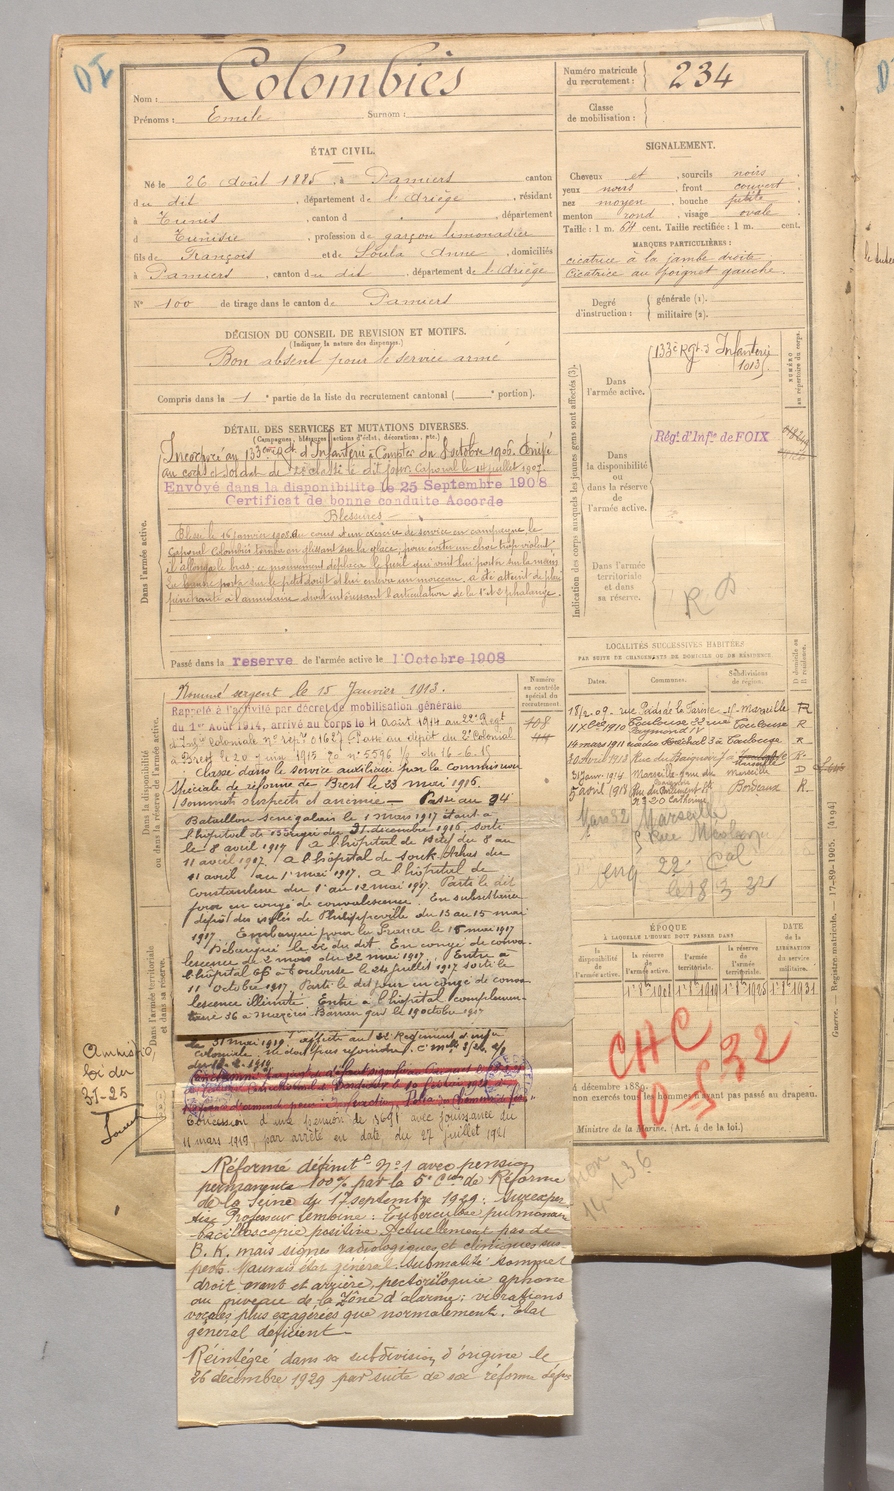 Nom : Colombiès
Prénoms : Emile Surnom :
Numéro matricule du recrutement : 234
Classe de mobilisation :
ÉTAT CIVIL.
Né le 26 Août 1885, à Pamiers canton
du dit, département de l'Ariège, résidant
à Tunis, canton d , département
d Tunisie, profession de garçon limonadier
fils de François et de Soula Anne, domiciliés
à Pamiers, canton du dit, département de l'Ariège
N° 100 de tirage dans le canton de Pamiers
SIGNALEMENT.
Cheveux et , sourcils noirs
yeux noirs , front couvert
nez moyen , bouche petite
menton rond , visage ovale
Taille : 1 m. 64 cent. Taille rectifiée : 1 m. cent.
MARQUES PARTICULIÈRES :
cicatrice à la jambe droite
Cicatrice au poignet gauche.
Degré d'instruction : générale (1).
militaire (2).
DÉCISION DU CONSEIL DE REVISION ET MOTIFS.
(Indiquer la nature des dispenses.)
Bon absent pour le service armé
Compris dans la 1e partie de la liste du recrutement cantonal ( e portion).
DÉTAIL DES SERVICES ET MUTATIONS DIVERSES.
(Campagnes, blessures, actions d'éclat, décorations, etc.)
Incorporé au 133eme Rgt d'Infanterie à Compter du 8 octobre 1906. Arrivé
au corps et soldat de 2e classe le dit jour Caporal le 14 juillet 1907.
Envoyé dans la disponibilité le 25 Septembre 1908
Certificat de bonne conduite Accordé
Blessures
Blessé le 16 janvier 1908 au cours d'un exercice de service en campagne, le
Caporal Colombiès tomba en glissant sur la glace; pour éviter un choc trop violent
il allongea le bras; ce mouvement déplaça le fusil qui vint lui porter sur la main
pénétrante à l'annulaire droit intéressant l'articulation de la 1e et 2e phalange.
Dans l'armée active.
Passé dans la reserve de l'armée active le 1 Octobre 1908
Indication des corps auxquels les jeunes gens sont affectés (3).
Dans l'armée active. 133e Rgt d'Infanterie
Dans la disponibilité ou dans la réserve de l'armée active.
Régt d'Infie de FOIX
Dans l'armée territoriale et dans sa réserve.
NUMÉRO au répertoire du corps.
LOCALITÉS SUCCESSIVES HABITÉES
PAR SUITE DE CHANGEMENTS DE DOMICILE OU DE RÉSIDENCE.
Dates. Communes. Subdivisions de région. D domicile ou R résidence.
18/2.09 Marseille R
1910 Toulouse 22 rue Raymond IV Toulouse R
14 mars 1911 Toulouse R
30 Avril 1913 Rue du Baignoir R
31 Janv. 1914 Marseille Marseille D
5 avril 1918 Bordeaux R
Mars 32 Marseille
le 18 3 32
ÉPOQUE
À LAQUELLE L'HOMME DOIT PASSER DANS
la disponibilité de l'armée active.
la réserve de l'armée active.
l'armée territoriale.
la réserve de l'armée territoriale.
DATE de la LIBÉRATION du service militaire.
CHC
10-5 32
4 décembre 1889.
non exercés tous les hommes n'ayant pas passé au drapeau.
Ministre de la Marine. (Art. 4 de la loi.)
Guerre. — Registre matricule. — 17-89-1905. [4194]
Dans la disponibilité ou dans la réserve de l'armée active.
Dans l'armée territoriale et dans sa réserve.
Numéro au contrôle spécial du recrutement.
Nommé sergent le 15 Janvier 1913.
Rappelé à l'activité par décret de mobilisation générale
du 1er Août 1914, arrivé au corps le 4 Août 1914 au 22e Régt
d'Infie Coloniale n° rép. 01627 Passé au dépôt du 2e Colonial
à Brest le 20 juin 1915
Classé dans le service auxiliaire par la Commission
Spéciale de réforme de Brest le 23 mai 1916.
(sommets suspects et anémie — Passé au 94
Bataillon Sénégalais le 1 mars 1917 étant à
l'hôpital de Bougie du 31 décembre 1916, sorti
le 8 avril 1917 à l'hôpital de Sétif du 8 au
11 avril 1917, à l'hôpital de Souck Arhas du
11 avril au 1 mai 1917. à l'hôpital de
Constantine du 1er au 12 mai 1917. Parti le dit
jour en congé de convalescence. En subsistance
dépôt des isolés de Philippeville du 13 au 15 mai
1917. Embarqué pour la France le 15 mai 1917
Débarqué le 22 du dit. En congé de conva-
lescence de 2 mois du 22 mai 1917. Entré à
l'hôpital 66 à Toulouse le 24 juillet 1917 sorti le
11 octobre 1917. Parti le dit jour en congé de conva
lescence illimité. Entré à l'hôpital complémen-
taire 36 à Mazères Barran Gers le 19 octobre 1917
le 31 mai 1919: affecté au 3e Régiment d'infie
Coloniale ne doit pas rejoindre
Concession d'une pension de 3691 avec jouissance du
11 mars 1919, par arrêté en date du 27 juillet 1921
Amnistié,
loi du
3-1-25
Réformé définitf n°1 avec pension
permanente 100% par la 5e Con de Réforme
de la Seine du 17 septembre 1929: Surexper
tise Professeur Lemoine: Tuberculose pulmonaire
bacilloscopie positive. Actuellement pas de
B. K. mais signes radiologiques et cliniques sus
pects. Mauvais état général. Submatité sommet
droit avant et arrière, pectoriloquie aphone
au niveau de la zône d'alarme; vibrations
vocales plus exagérées que normalement. État
général déficient
Réintégré dans sa subdivision d'origine le
26 décembre 1929 par suite de sa réforme défve